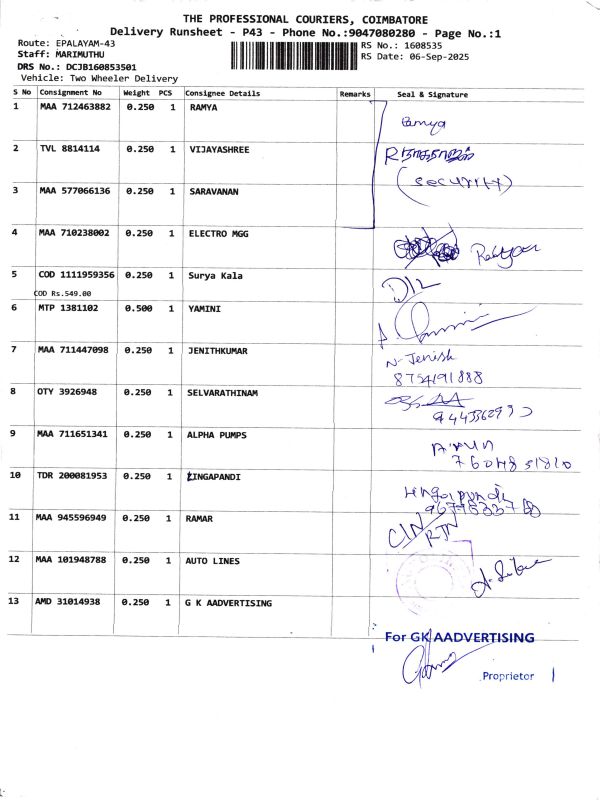 THE PROFESSIONAL COURIERS, COIMBATORE
Delivery Runsheet - P43 - Phone No.:9047080280 - Page No.:1
Route: EPALAYAM-43
Staff: MARIMUTHU
DRS No.: DCJB160853501
Vehicle: Two Wheeler Delivery
RS No.: 1608535
RS Date: 06-Sep-2025
S No Consignment No Weight PCS Consignee Details Remarks Seal & Signature
1 MAA 712463882 0.250 1 RAMYA
Ramya
2 TVL 8814114 0.250 1 VIJAYASHREE
(security)
3 MAA 577066136 0.250 1 SARAVANAN
4 MAA 710238002 0.250 1 ELECTRO MGG
5 COD 1111959356 0.250 1 Surya Kala
COD Rs.549.00
D/L
6 MTP 1381102 0.500 1 YAMINI
7 MAA 711447098 0.250 1 JENITHKUMAR
N-Jenish
8754191888
8 OTY 3926948 0.250 1 SELVARATHINAM
9 MAA 711651341 0.250 1 ALPHA PUMPS
Arun
10 TDR 200081953 0.250 1 LINGAPANDI
Lingapandi
11 MAA 945596949 0.250 1 RAMAR
CIN/RTN
12 MAA 101948788 0.250 1 AUTO LINES
13 AMD 31014938 0.250 1 G K AADVERTISING
For GK AADVERTISING
Proprietor